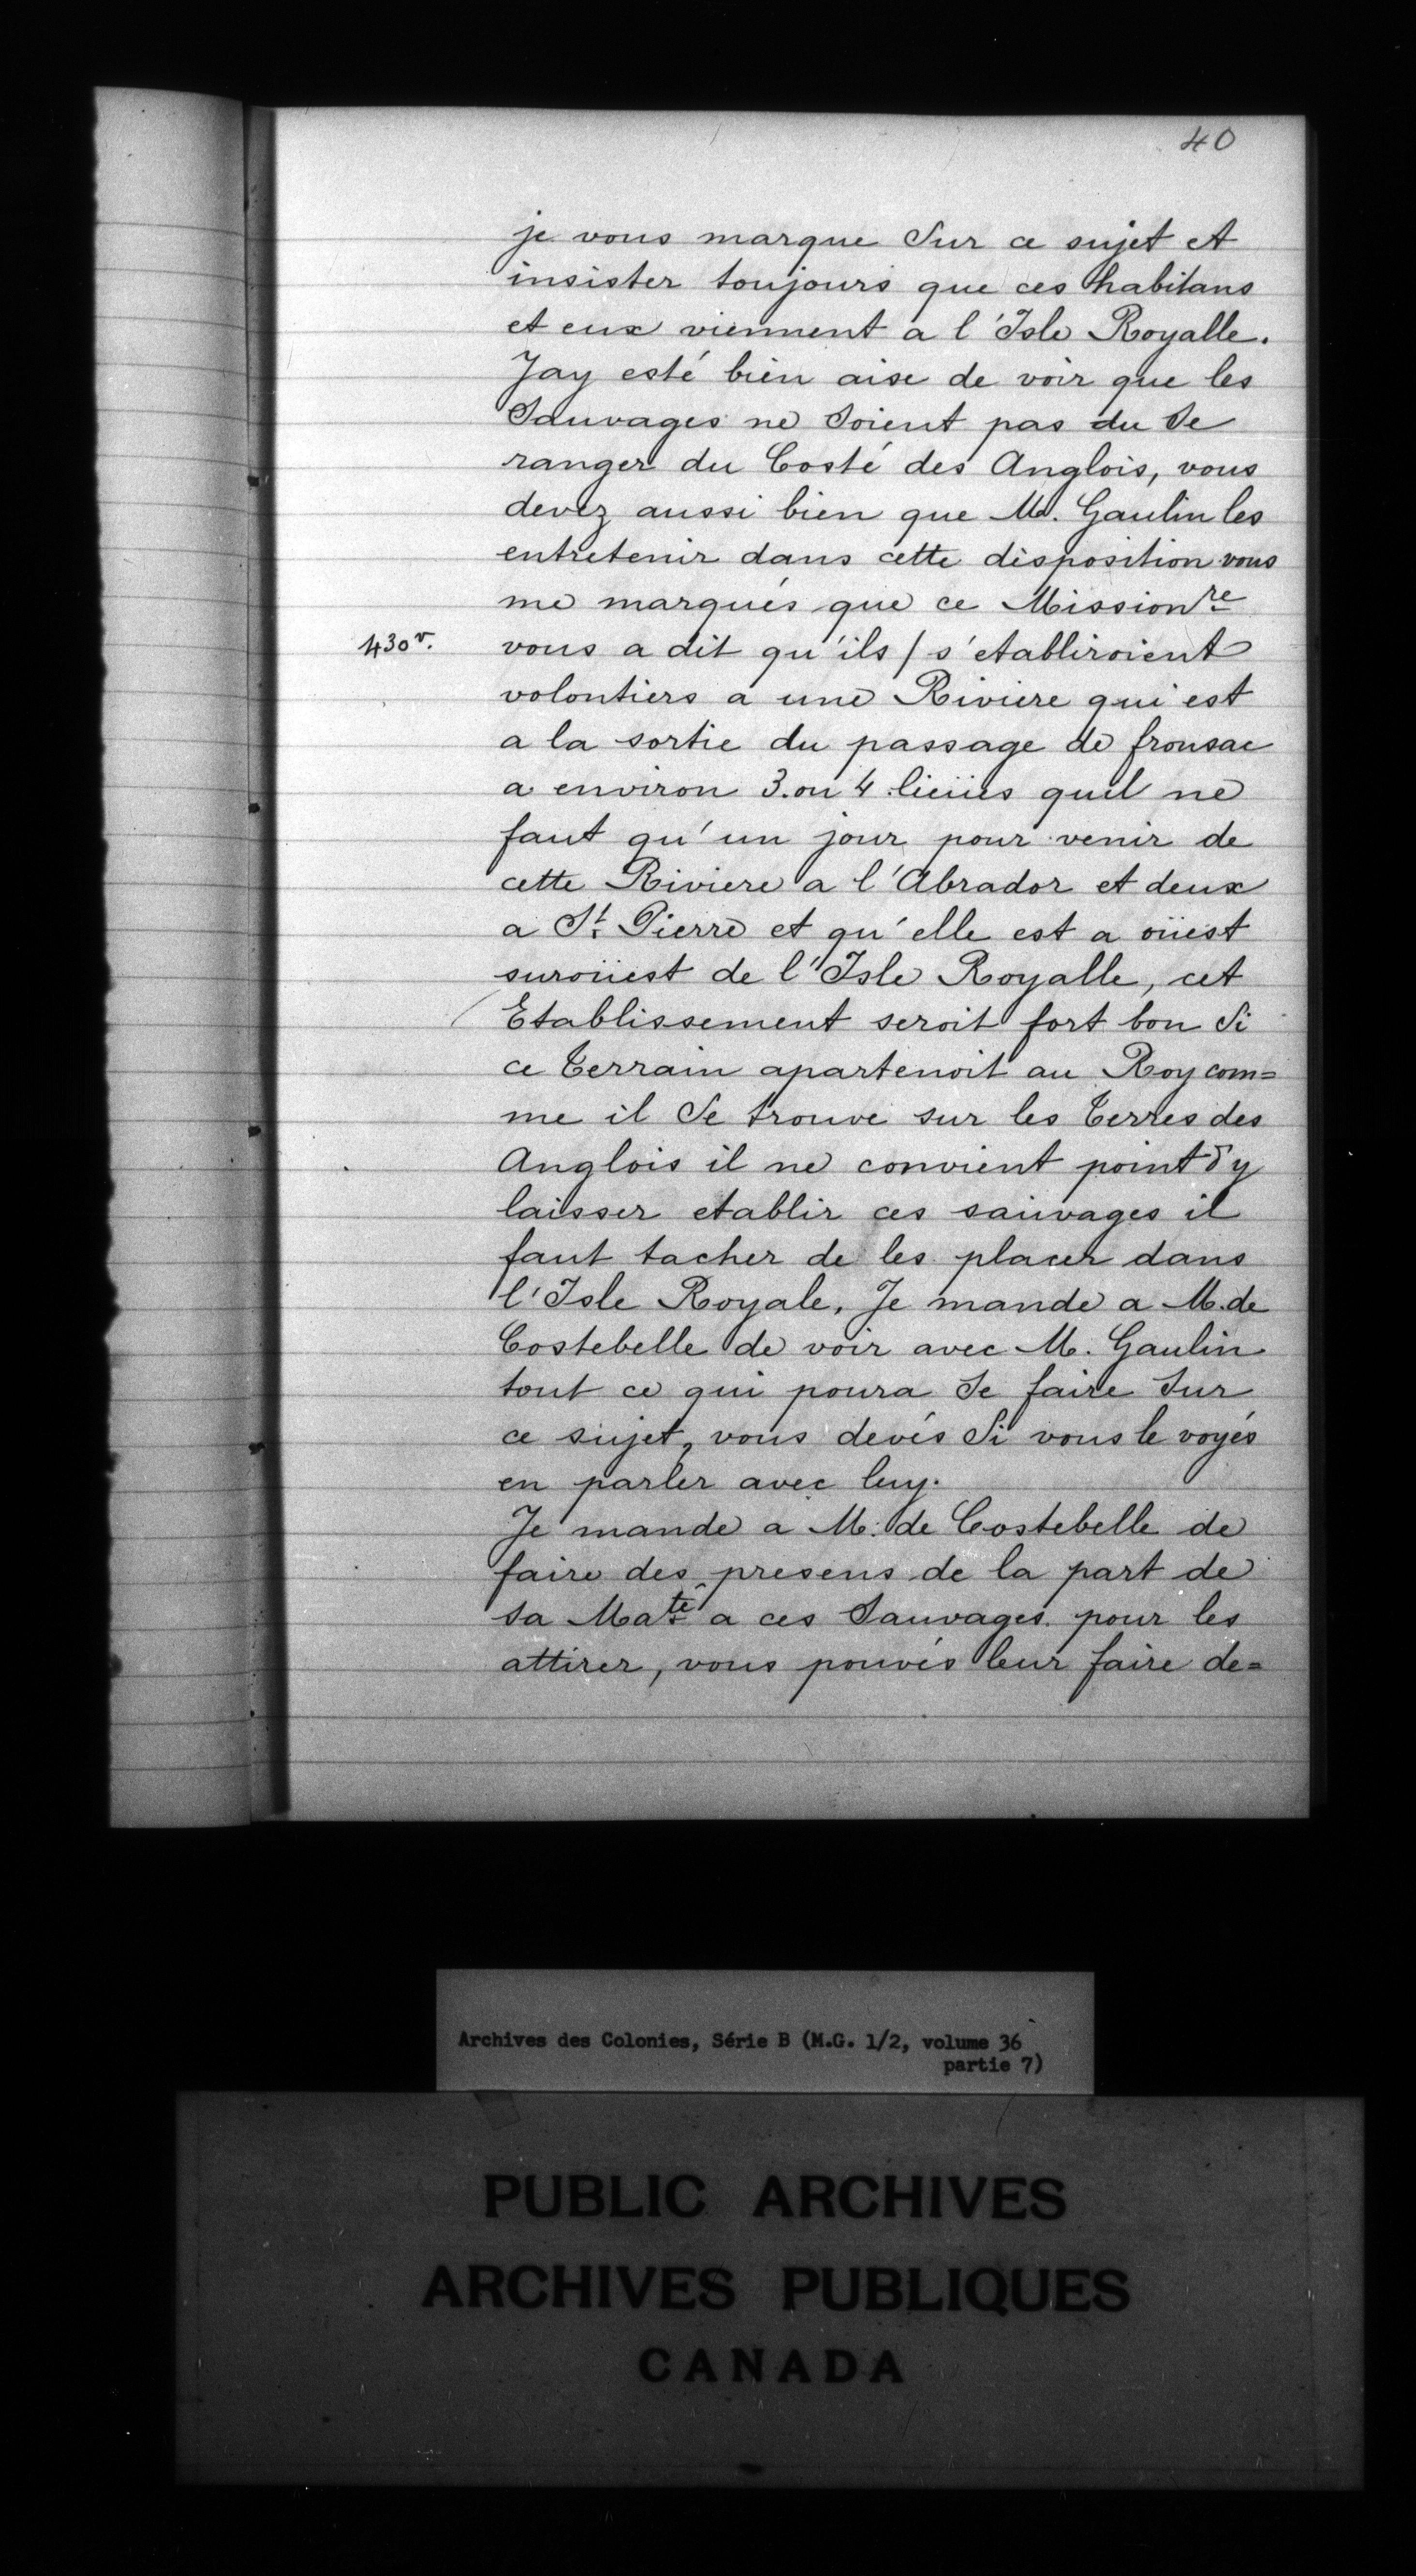 40
je vous marque Sur ce sujet et
insister toujours que ces habitans
et eux viennent a l'Isle Royalle.
Jay esté bien aise de voir que les
Sauvages ne soient pas du Se
ranger du Costé des Anglois, vous
devez aussi bien que M. Gaulin les
entretenir dans cette disposition vous
me marqués que ce Missionre
430v. vous a dit qu'ils / s'etabliroient
volontiers a une Riviere qui est
a la sortie du passage de fronsac
a environ 3. ou 4 lieües quil ne
faut qu'un jour pour venir de
cette Riviere a l'Abrador et deux
a St. Pierre et qu'elle est a oüest
suroüest de l'Isle Royalle, cet
Etablissement seroit fort bon Si
ce terrain apartenoit au Roy com=
me il Se trouve sur les terres des
Anglois il ne convient point d'y
laisser etablir ces sauvages il
faut tacher de les placer dans
l'Isle Royale, Je mande a M. de
Costebelle de voir avec M. Gaulin
tout ce qui poura Se faire Sur
ce sujet, vous devés Si vous le voyés
en parler avec luy.
Je mande a M. de Costebelle de
faire des presens de la part de
Sa Maté a ces Sauvages pour les
attirer, vous pouvés leur faire de=
Archives des Colonies, Série B (M.G. 1/2, volume 36
partie 7)
PUBLIC ARCHIVES
ARCHIVES PUBLIQUES
CANADA